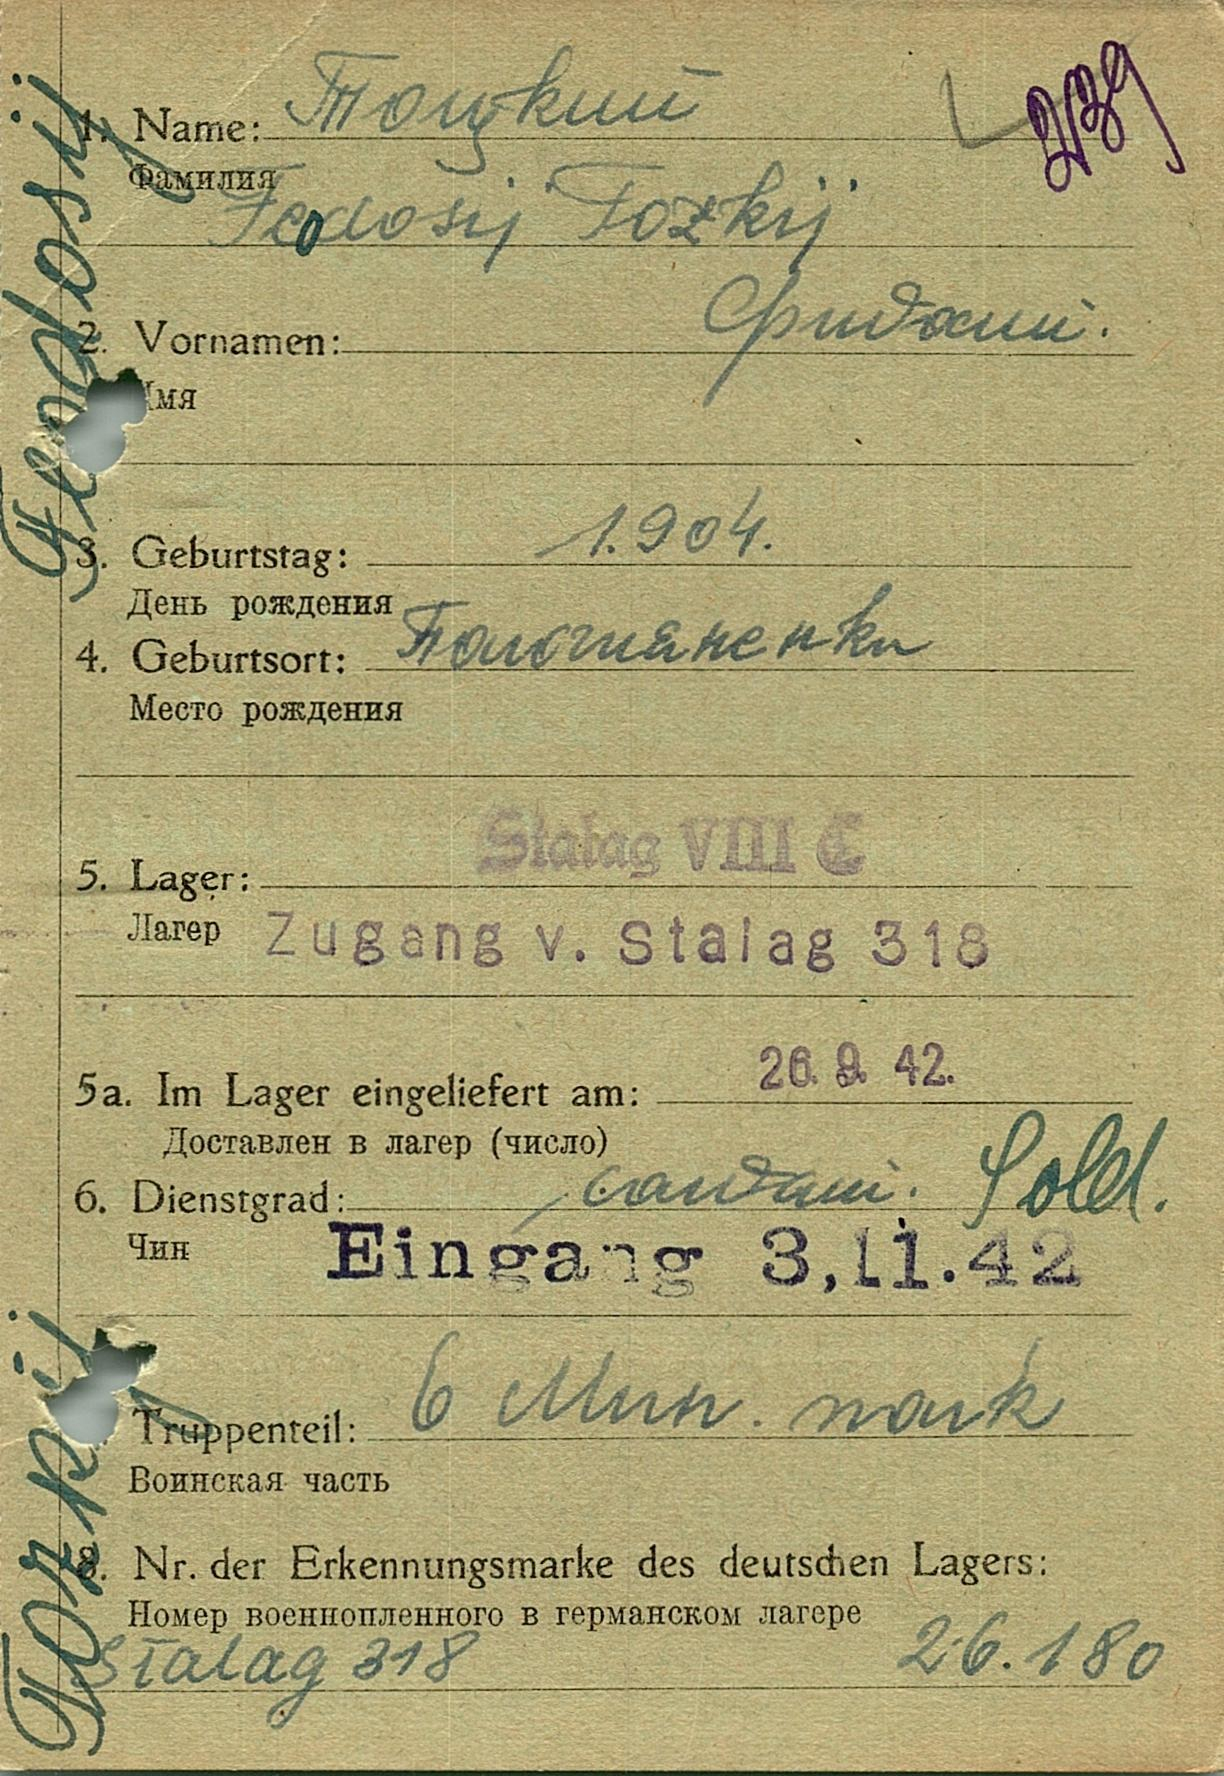 239
1. Name: Тоцкий
Фамилия
Fedosij Tozkij
2. Vornamen:
Имя
3. Geburtstag: 1.904.
День рождения
4. Geburtsort:
Место рождения
Stalag VIII C
5. Lager:
Лагер Zugang v. Stalag 318
5a. Im Lager eingeliefert am: 26. 9. 42.
Доставлен в лагер (число)
6. Dienstgrad: Sold.
Чин Eingang 3,11.42
Truppenteil: 6
Воинская часть
8. Nr. der Erkennungsmarke des deutschen Lagers:
Номер военнопленного в германском лагере
Stalag 318 26.180
Tozkij Feodosij